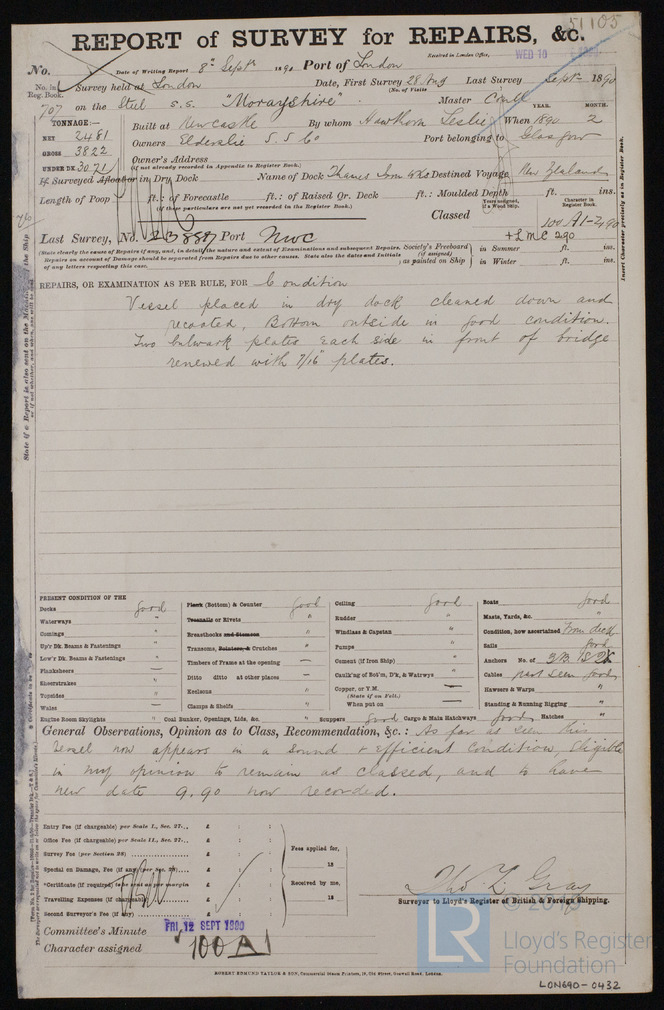 51105
REPORT of SURVEY for REPAIRS, &c.
Received in London Office, WED 10
No. Date of Writing Report 8th Septr 1890 Port of London
No. in Reg. Book. Survey held at London Date, First Survey 28 Aug Last Survey Septr 1890
(No. of Visits
707 on the Steel S.S. "Morayshire" Master
TONNAGE:— YEAR. MONTH.
NET 2481 Built at Newcastle By whom Hawthorn Leslie When 1890 2
GROSS 3822 Owners Elderslie S.S. Co Port belonging to Glasgow
UNDER DK 3071 Owner's Address
(if not already recorded in Appendix to Register Book.)
If Surveyed Afloat or in Dry Dock Name of Dock Thames Iron Wks Destined Voyage New Zealand
Length of Poop ft.: of Forecastle ft.: of Raised Qr. Deck ft.: Moulded Depth ft. ins.
(if these particulars are not yet recorded in the Register Book.)
Classed
Years assigned, if a Wood Ship. Character in Register Book.
100 A1-2,90
+LMC 2.90
Last Survey, No. 23887 Port Nwc
(State clearly the cause of Repairs if any, and, in detail, the nature and extent of Examinations and subsequent Repairs.
Repairs on account of Damage should be separated from Repairs due to other causes. State also the dates and Initials
of any letters respecting this case.
Society's Freeboard (if assigned) as painted on Ship
in Summer ft. ins.
in Winter ft. ins.
REPAIRS, OR EXAMINATION AS PER RULE, FOR Condition
Vessel placed in dry dock cleaned down and
recoated, Bottom outside in good condition.
Two bulwark plates each side in front of bridge
renewed with 7/16" plates.
PRESENT CONDITION OF THE
Decks good
Waterways "
Comings "
Up'r Dk. Beams & Fastenings "
Low'r Dk. Beams & Fastenings "
Planksheers —
Sheerstrakes "
Topsides "
Wales —
Engine Room Skylights "
Plank (Bottom) & Counter good
Treenails or Rivets "
Breasthooks and Stemson "
Transoms, Pointers, & Crutches "
Timbers of Frame at the opening —
Ditto ditto at other places —
Keelsons "
Clamps & Shelfs "
Coal Bunker, Openings, Lids, &c. "
Ceiling good
Rudder "
Windlass & Capstan "
Pumps "
Cement (if Iron Ship) "
Caulk'ng of Bot'm, D'k, & Watrwys "
Copper, or Y.M. —
(State if on Felt.)
When put on —
Scuppers good Cargo & Main Hatchways good Hatches "
Boats good
Masts, Yards, &c. "
Condition, how ascertained From deck
Sails good
Anchors No. of 3/B. 1S 2K
Cables part seen good
Hawsers & Warps "
Standing & Running Rigging "
General Observations, Opinion as to Class, Recommendation, &c.: As far as seen this
Vessel now appears in a sound & efficient condition, Eligible
in my opinion to remain as classed, and to have
new date 9.90 now recorded.
Entry Fee (if chargeable) per Scale I., Sec. 27... £ : :
Office Fee (if chargeable) per Scale II., Sec. 27... £ : :
Survey Fee (per Section 28) £ : :
Special or Damage, Fee (if any) (per Sec. 28) £ : :
*Certificate (if required) to be sent as per margin
Travelling Expenses (if chargeable) £ : :
Second Surveyor's Fee (if any) £ : :
Fees applied for, 18
Received by me, 18
Thos L Gray
Surveyor to Lloyd's Register of British & Foreign Shipping.
Committee's Minute FRI, 12 SEPT 1890
Character assigned 100 A1
ROBERT EDMUND TAYLOR & SON, Commercial Steam Printers, 19, Old Street, Goswell Road, London.
LR
Lloyd's Register
Foundation
LON690-0432